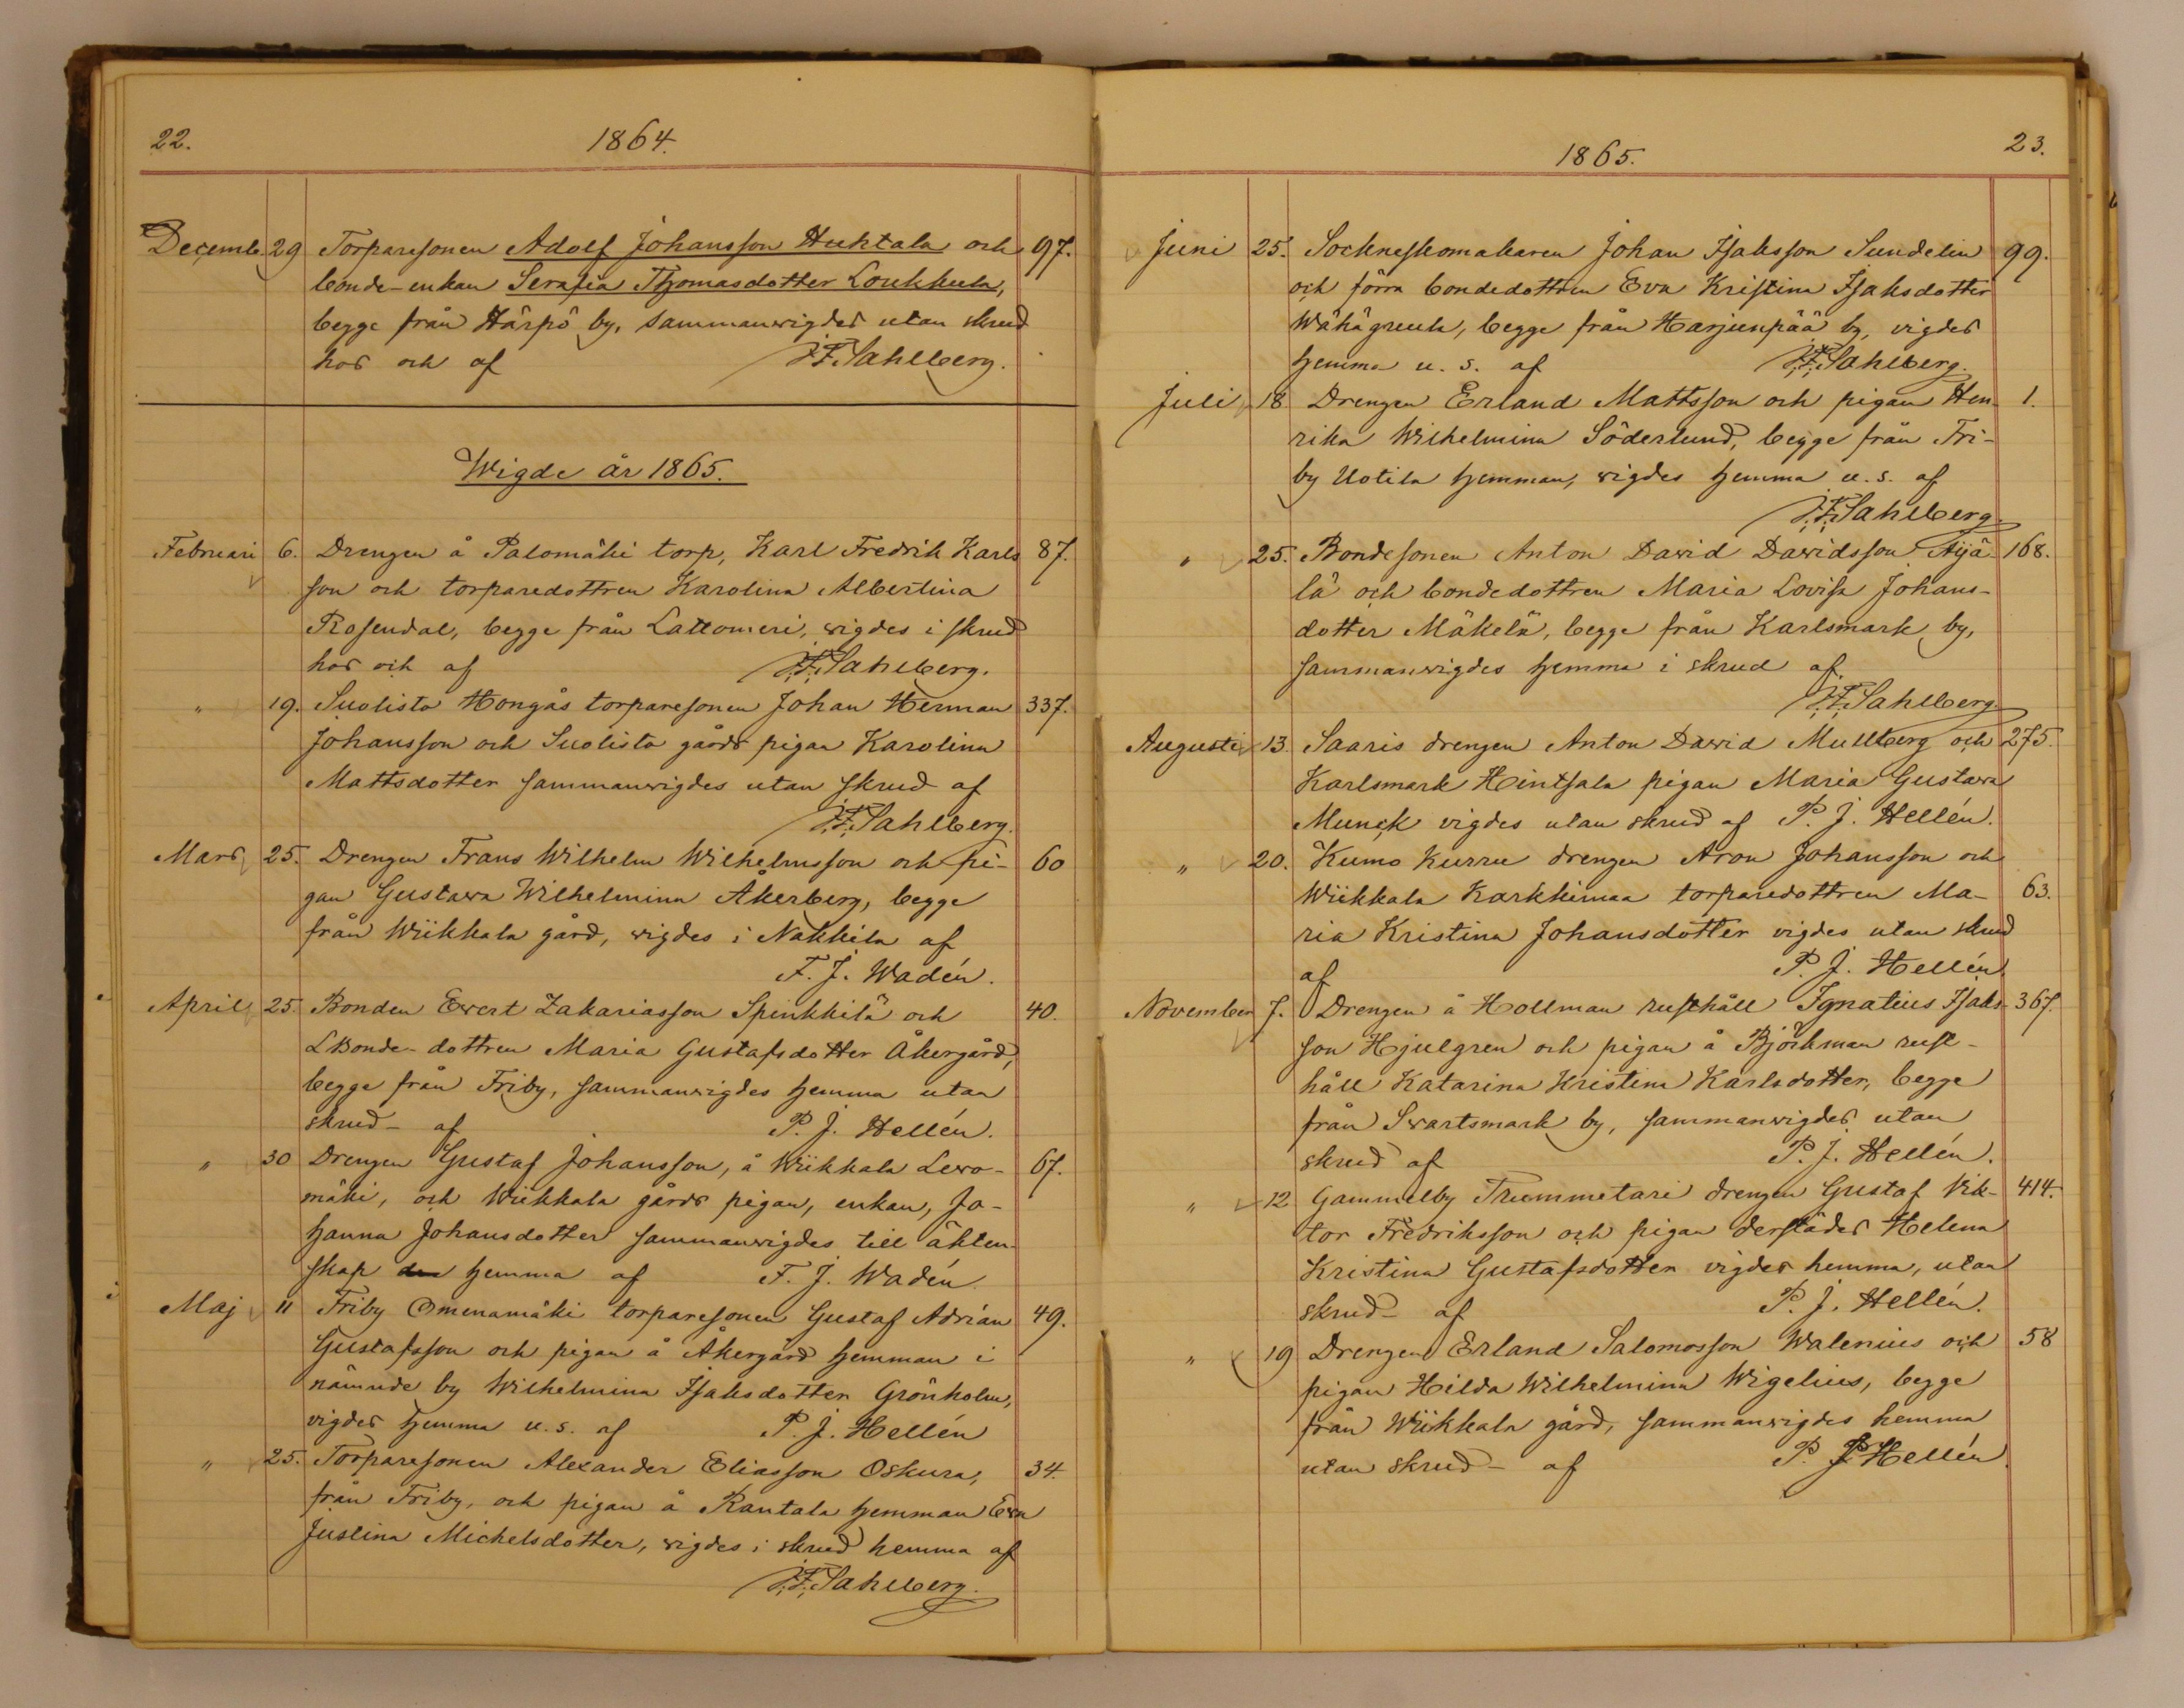 22.
1864.
Decemb. 29 Torparesonen Adolf Johansson Huhtala och 97.
bonde-enkan Serafia Thomasdotter Loukkula,
begge från Härpö by, sammanvigdes utan skrud
hos och af F. Sahlberg.
Wigde år 1865.
Februari 6. Drengen å Palomäki torp, Karl Fredrik Karls 87.
son och torparedottren Karolina Albertina
Rosendal, begge från Lattomeri, vigdes i skrud
hos och af F. Sahlberg.
" 19. Suolisto Hongås torparesonen Johan Herman 337.
Johansson och Suolisto gårds pigan Karolina
Mattsdotter sammanvigdes utan skrud af
F. Sahlberg.
Mars 25. Drengen Frans Wilhelm Wilhelmsson och pi- 60
gan Gustava Wilhelmina Åkerberg, begge
från Wiikkala gård, vigdes i Nakkila af
F. J. Wadén.
April 25. Bonden Evert Zakariasson Spinkkilä och 40.
Bonde-dottren Maria Gustafsdotter Åkergård,
begge från Friby, sammanvigdes hemma utan
skrud af P. J. Hellén.
" 30 Drengen Gustaf Johansson, å Wiikkala Levo- 67.
mäki, och Wiikkala gårds pigan, enkan, Jo-
hanna Johansdotter sammanvigdes till äkten-
skap hemma af F. J. Wadén
Maj 11 Friby Omenamäki torparesonen Gustaf Adrian 49.
Gustafsson och pigan å Åkergård hemman i
nämnde by Wilhelmina Isaksdotter Grönholm,
vigdes hemma u. s. af P. J. Hellén
" 25. Torparesonen Alexander Eliasson Oskura, 34.
från Friby, och pigan å Rantala hemman Eva
Justina Michelsdotter, vigdes i skrud hemma af
F. Sahlberg.
1865.
23.
Juni 25. Sockneskomakaren Johan Isaksson Sundelin 99.
och förra bondedottren Eva Kristina Isaksdotter
Wähägreula, begge från Harjunpää by, vigdes
hemma u. s. af F. Sahlberg.
Juli 18 Drengen Erland Mattsson och pigan Hen- 1.
rika Wilhelmina Söderlund, begge från Fri-
by Uotila hemman, vigdes hemma u. s. af
F. Sahlberg.
" 25. Bondesonen Anton David Davidsson Äijä- 168.
lä och bondedottren Maria Lovisa Johans-
dotter Mäkelä, begge från Karlsmark by,
sammanvigdes hemma i skrud af
F. Sahlberg.
Augusti 13 Saaris drengen Anton David Mullberg och 275.
Karlsmark Hintsala pigan Maria Gustava
Munck vigdes utan skrud af P. J. Hellén.
" 20. Kumo Kurru drengen Aron Johansson och
Wiikkala Karkkimaa torparedottren Ma- 63.
ria Kristina Johansdotter vigdes utan skrud
af P. J. Hellén
November 7. Drengen å Hollman rusthåll Ignatius Isaks- 367.
son Hjulgren och pigan å Björkman rust-
håll Katarina Kristina Karlsdotter, begge
från Svartsmark by, sammanvigdes utan
skrud af P. J. Hellén.
" 12 Gammelby Trummetari drengen Gustaf Vik- 414.
tor Fredriksson och pigan derstädes Helena
Kristina Gustafsdotter vigdes hemma, utan
skrud af P. J. Hellén.
" 19 Drengen Erland Salomosson Walenius och 58
pigan Hilda Wilhelmina Wigelius, begge
från Wiikkala gård, sammanvigdes hemma
utan skrud af P. J. Hellén